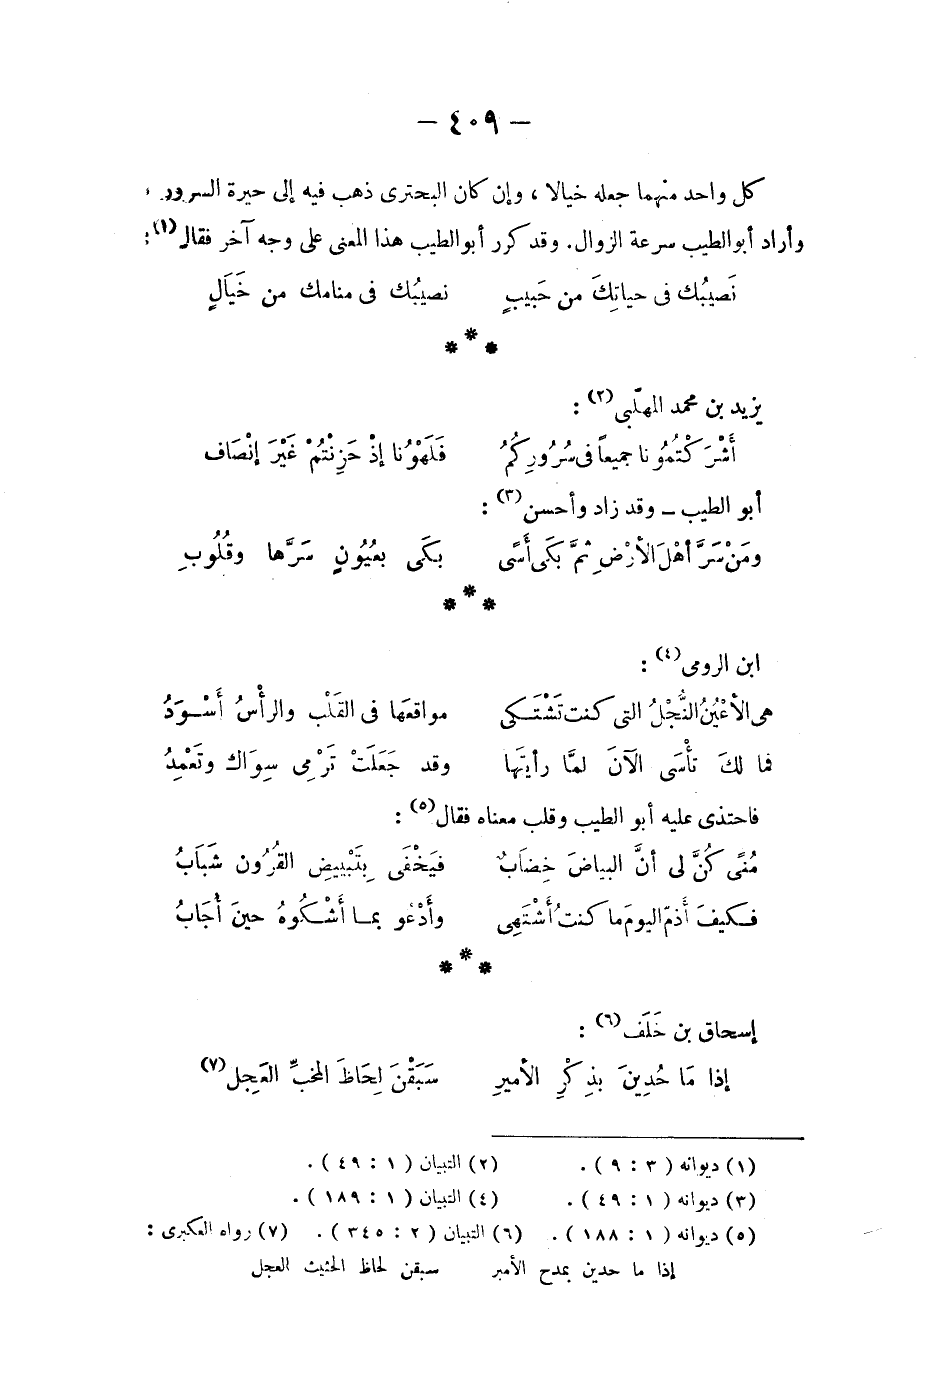 — ٤٠٩ —
كل واحد منهما جعله خيالا ، وإن كان البحترى ذهب فيه إلى حيرة السرور ،
وأراد أبو الطيب سرعة الزوال. وقد كرر أبو الطيب هذا المعنى على وجه آخر فقال(١):
نَصيبُك فى حياتِكَ من حَبيبٍ نصيبُك فى منامك من خَيَالِ
* * *
يزيد بن محمد المهلّبى(٢) :
أَشْرَكْتُمُونا جميعاً فى سُرُورِكُمُ فَلَهْوُنا إذْ حَزِنْتُمْ غَيْرَ إنْصَاف
أبو الطيب ــ وقد زاد وأحسن(٣) :
ومَنْ سَرَّ أهْلَ الأرْضِ ثمَّ بَكَى أَسًى بَكَى بعُيُونٍ سَرَّها وقُلُوبِ
* * *
ابن الرومى(٤) :
هى الأعْيُنُ النُّجْلُ التى كنت تَشْتَـكى مواقعَها فى القَلْب والرأْسُ أَسْـوَدُ
فما لكَ تأْسَى الآنَ لمَّا رأيتَها وقد جَعَلَتْ تَرْمِى سِوَاك وتَعْمِدُ
فاحتذى عليه أبو الطيب وقلب معناه فقال(٥) :
مُنًى كُنَّ لى أنَّ البياضَ خِضَابٌ فيَخْفَى بِتَبْييضِ القُرُون شَبَابُ
فـكيفَ أَذمّ اليومَ ما كنتُ أَشْتَهِى وأَدْعُو بمـا أَشْـكُوهُ حينَ أُجَابُ
* * *
إسحاق بن خَلَف(٦) :
إذا مَا حُدِينَ بذِكْرِ الأميرِ سَبَقْنَ لِحَاظَ المخبِّ العَجِل(٧)
(١) ديوانه ( ٣ : ٩ ) . (٢) التبيان ( ١ : ٤٩ ) .
(٣) ديوانه ( ١ : ٤٩ ) . (٤) التبيان ( ١ : ١٨٩ ) .
(٥) ديوانه ( ١ : ١٨٨ ) . (٦) التبيان ( ٢ : ٣٤٥ ) . (٧) رواه العكبرى :
إذا ما حدين بمدح الأمير سبقن لحاظ الحثيث العجل